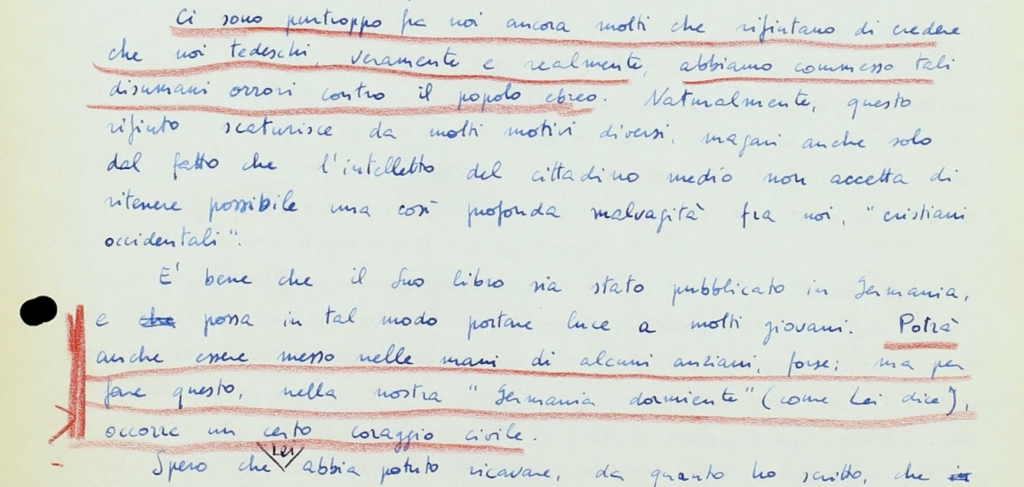 Ci sono purtroppo fra noi ancora molti che rifiutano di credere
che noi tedeschi, veramente e realmente, abbiamo commesso tali
disumani orrori contro il popolo ebreo. Naturalmente, questo
rifiuto scaturisce da molti motivi diversi, magari anche solo
dal fatto che l'intelletto del cittadino medio non accetta di
ritenere possibile una così profonda malvagità fra noi, "cristiani
occidentali".
E' bene che il Suo libro sia stato pubblicato in Germania,
e che possa in tal modo portare luce a molti giovani. Potrà
anche essere messo nelle mani di alcuni anziani, forse; ma per
fare questo, nella nostra "Germania dormiente" (come Lei dice),
occorre un certo coraggio civile.
Spero che Lei abbia potuto ricavare, da quanto ho scritto, che in